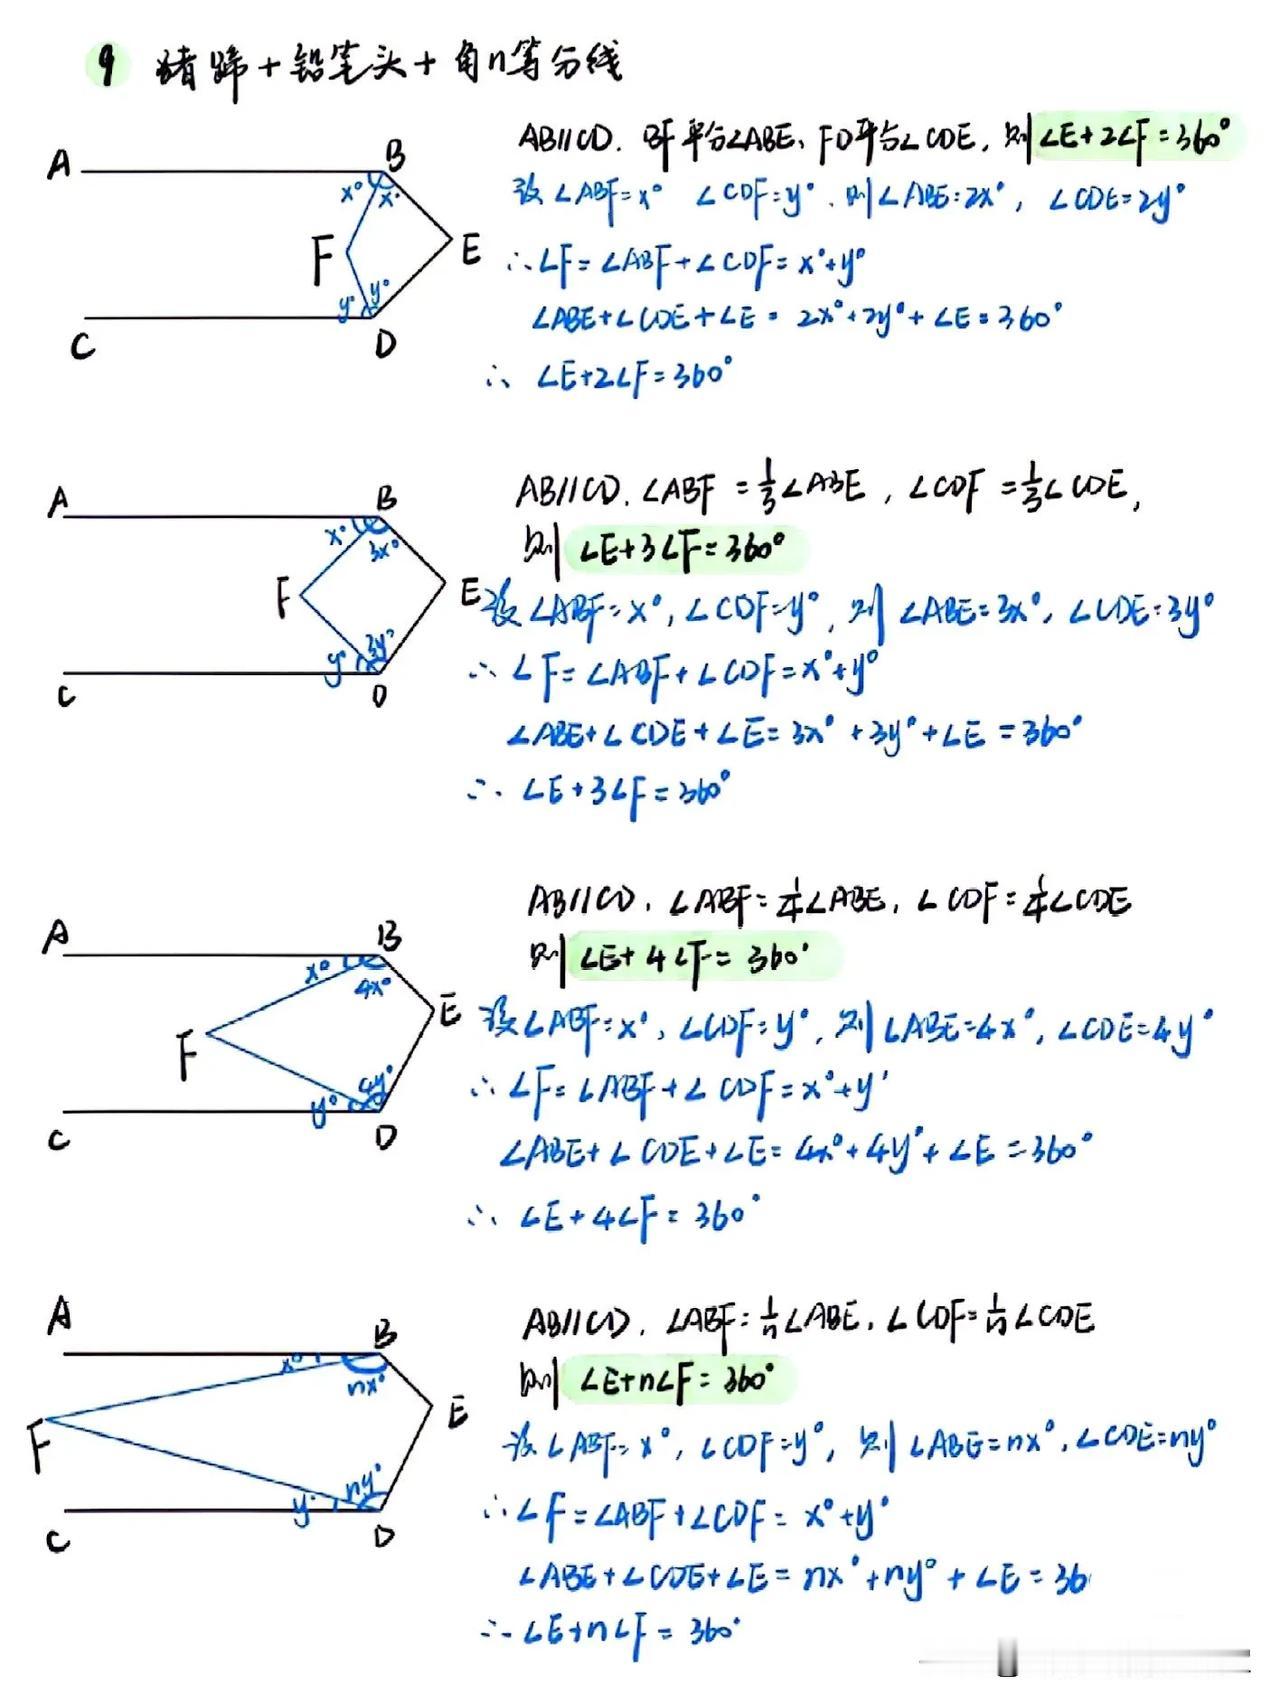 9 猪蹄+铅笔头+角n等分线
AB∥CD. BF平分∠ABE、FD平分∠CDE, 则∠E+2∠F=360°
设∠ABF=x° ∠CDF=y°. 则∠ABE=2x°, ∠CDE=2y°
∴∠F=∠ABF+∠CDF=x°+y°
∠ABE+∠CDE+∠E=2x°+2y°+∠E=360°
∴ ∠E+2∠F=360°
A
B
x°
x°
F
E
y°
y°
C
D
AB∥CD. ∠ABF=1/3∠ABE, ∠CDF=1/3∠CDE,
则 ∠E+3∠F=360°
设∠ABF=x°, ∠CDF=y°, 则 ∠ABE=3x°, ∠CDE=3y°
∴∠F=∠ABF+∠CDF=x°+y°
∠ABE+∠CDE+∠E=3x°+3y°+∠E=360°
∴ ∠E+3∠F=360°
A
B
x°
3x°
F
E
3y°
y°
C
D
AB∥CD. ∠ABF=1/4∠ABE, ∠CDF=1/4∠CDE
则 ∠E+4∠F=360°
设∠ABF=x°, ∠CDF=y°, 则∠ABE=4x°, ∠CDE=4y°
∴∠F=∠ABF+∠CDF=x°+y°
∠ABE+∠CDE+∠E=4x°+4y°+∠E=360°
∴ ∠E+4∠F=360°
A
B
x°
4x°
E
F
4y°
y°
C
D
AB∥CD. ∠ABF=1/n∠ABE. ∠CDF=1/n∠CDE
则 ∠E+n∠F=360°
设∠ABF=x°, ∠CDF=y°, 则∠ABE=nx°, ∠CDE=ny°
∴∠F=∠ABF+∠CDF=x°+y°
∠ABE+∠CDE+∠E=nx°+ny°+∠E=36
∴∠E+n∠F=360°
A
B
x°
nx°
E
F
ny°
y°
C
D